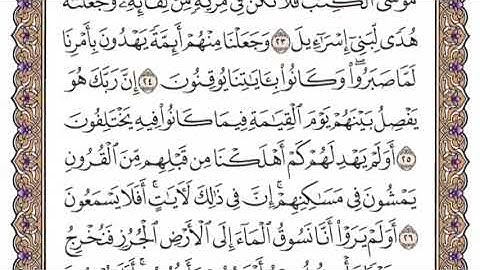 مُوسَى ٱلْكِتَٰبَ فَلَا تَكُن فِى مِرْيَةٍ مِّن لِّقَآئِهِۦ وَجَعَلْنَٰهُ
هُدًى لِّبَنِىٓ إِسْرَٰٓءِيلَ ٢٣ وَجَعَلْنَا مِنْهُمْ أَئِمَّةً يَهْدُونَ بِأَمْرِنَا
لَمَّا صَبَرُوا۟ۖ وَكَانُوا۟ بِـَٔايَٰتِنَا يُوقِنُونَ ٢٤ إِنَّ رَبَّكَ هُوَ
يَفْصِلُ بَيْنَهُمْ يَوْمَ ٱلْقِيَٰمَةِ فِيمَا كَانُوا۟ فِيهِ يَخْتَلِفُونَ
٢٥ أَوَلَمْ يَهْدِ لَهُمْ كَمْ أَهْلَكْنَا مِن قَبْلِهِم مِّنَ ٱلْقُرُونِ
يَمْشُونَ فِى مَسَٰكِنِهِمْۚ إِنَّ فِى ذَٰلِكَ لَءَايَٰتٍۚ أَفَلَا يَسْمَعُونَ
٢٦ أَوَلَمْ يَرَوْا۟ أَنَّا نَسُوقُ ٱلْمَآءَ إِلَى ٱلْأَرْضِ ٱلْجُرُزِ فَنُخْرِجُ